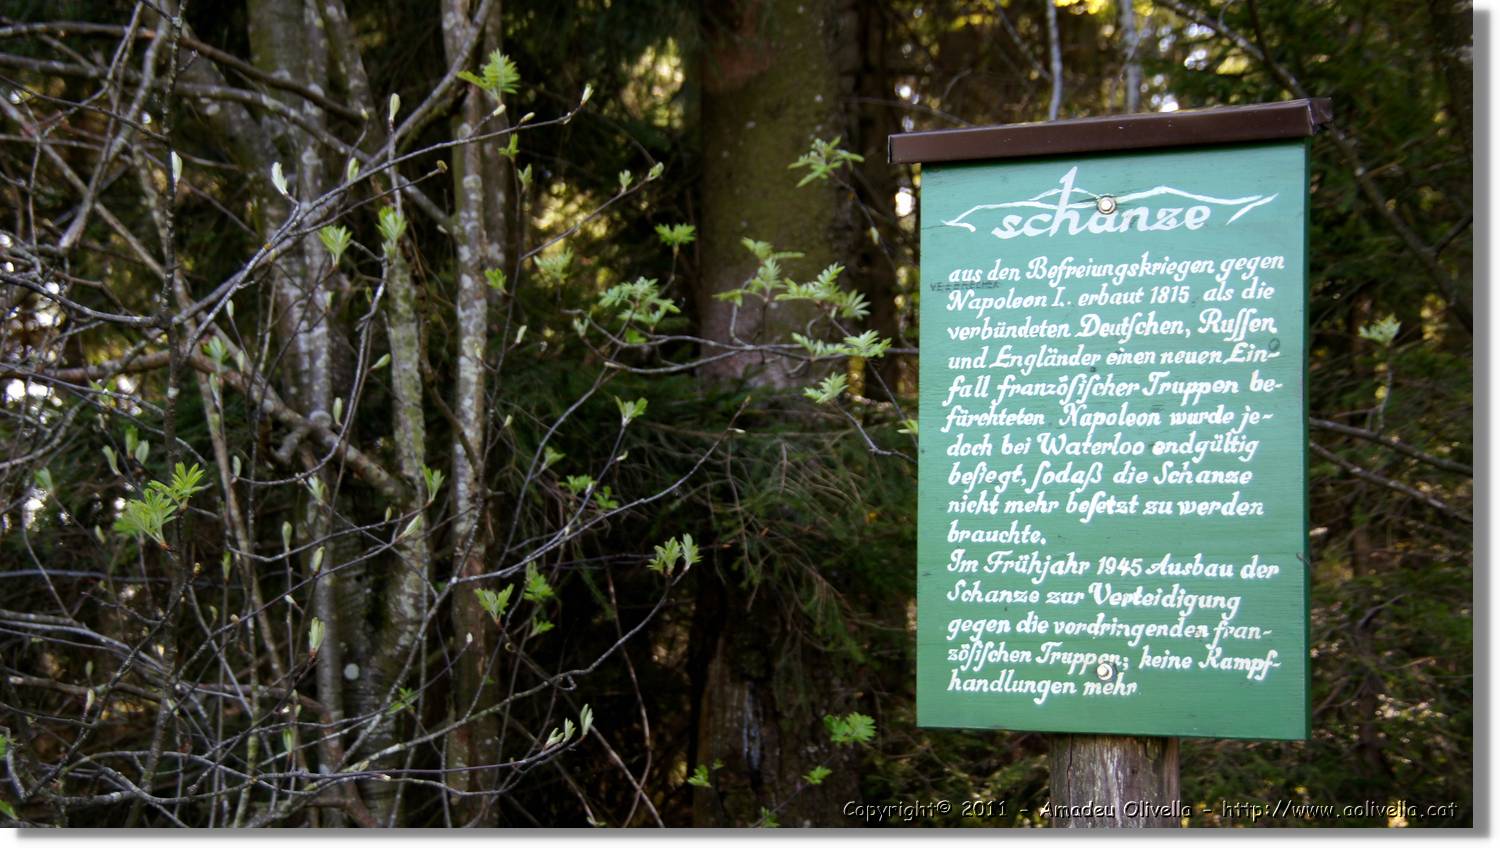 schanze
aus den Befreiungskriegen gegen
Napoleon I. erbaut 1815 als die
verbündeten Deutſchen, Ruſſen
und Engländer einen neuen Ein-
fall franzöſiſcher Truppen be-
fürchteten Napoleon wurde je-
doch bei Waterloo endgültig
beſiegt, ſodaß die Schanze
nicht mehr beſetzt zu werden
brauchte.
Im Frühjahr 1945 Ausbau der
Schanze zur Verteidigung
gegen die vordringenden fran-
zöſiſchen Truppen; keine Kampf-
handlungen mehr
Copyright© 2011 - Amadeu Olivella - http://www.aolivella.cat